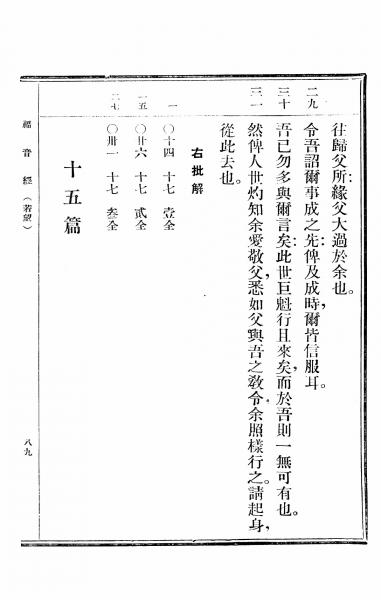 往歸父所；緣父大過於余也。
二九 令吾詔爾事成之先；俾及成時，爾皆信服耳。
三十 吾已勿多與爾言矣；此世巨魁行且來矣，而於吾則一無可有也。
三一 然俾人世灼知余愛敬父，悉如父與吾之教令余照樣行之。請起身，
從此去也。
右批解
一 〇十四 十七 壹全
一五 〇廿六 十七 貳全
二七 〇卅一 十七 叁全
十五篇
福音經（若望） 八九